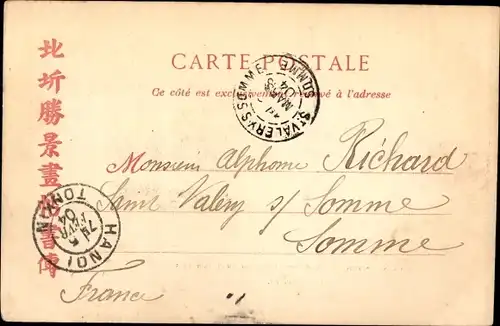 CARTE POSTALE
Ce côté est exclusivement réservé à l'adresse
北圻勝景畫
書傳
ST VALERY-S-SOMME SOMME
MARS
04
HANOI TONKIN
5
FEVR
04
Monsieur Alphonse Richard
Saint Valéry s/ Somme
Somme
France